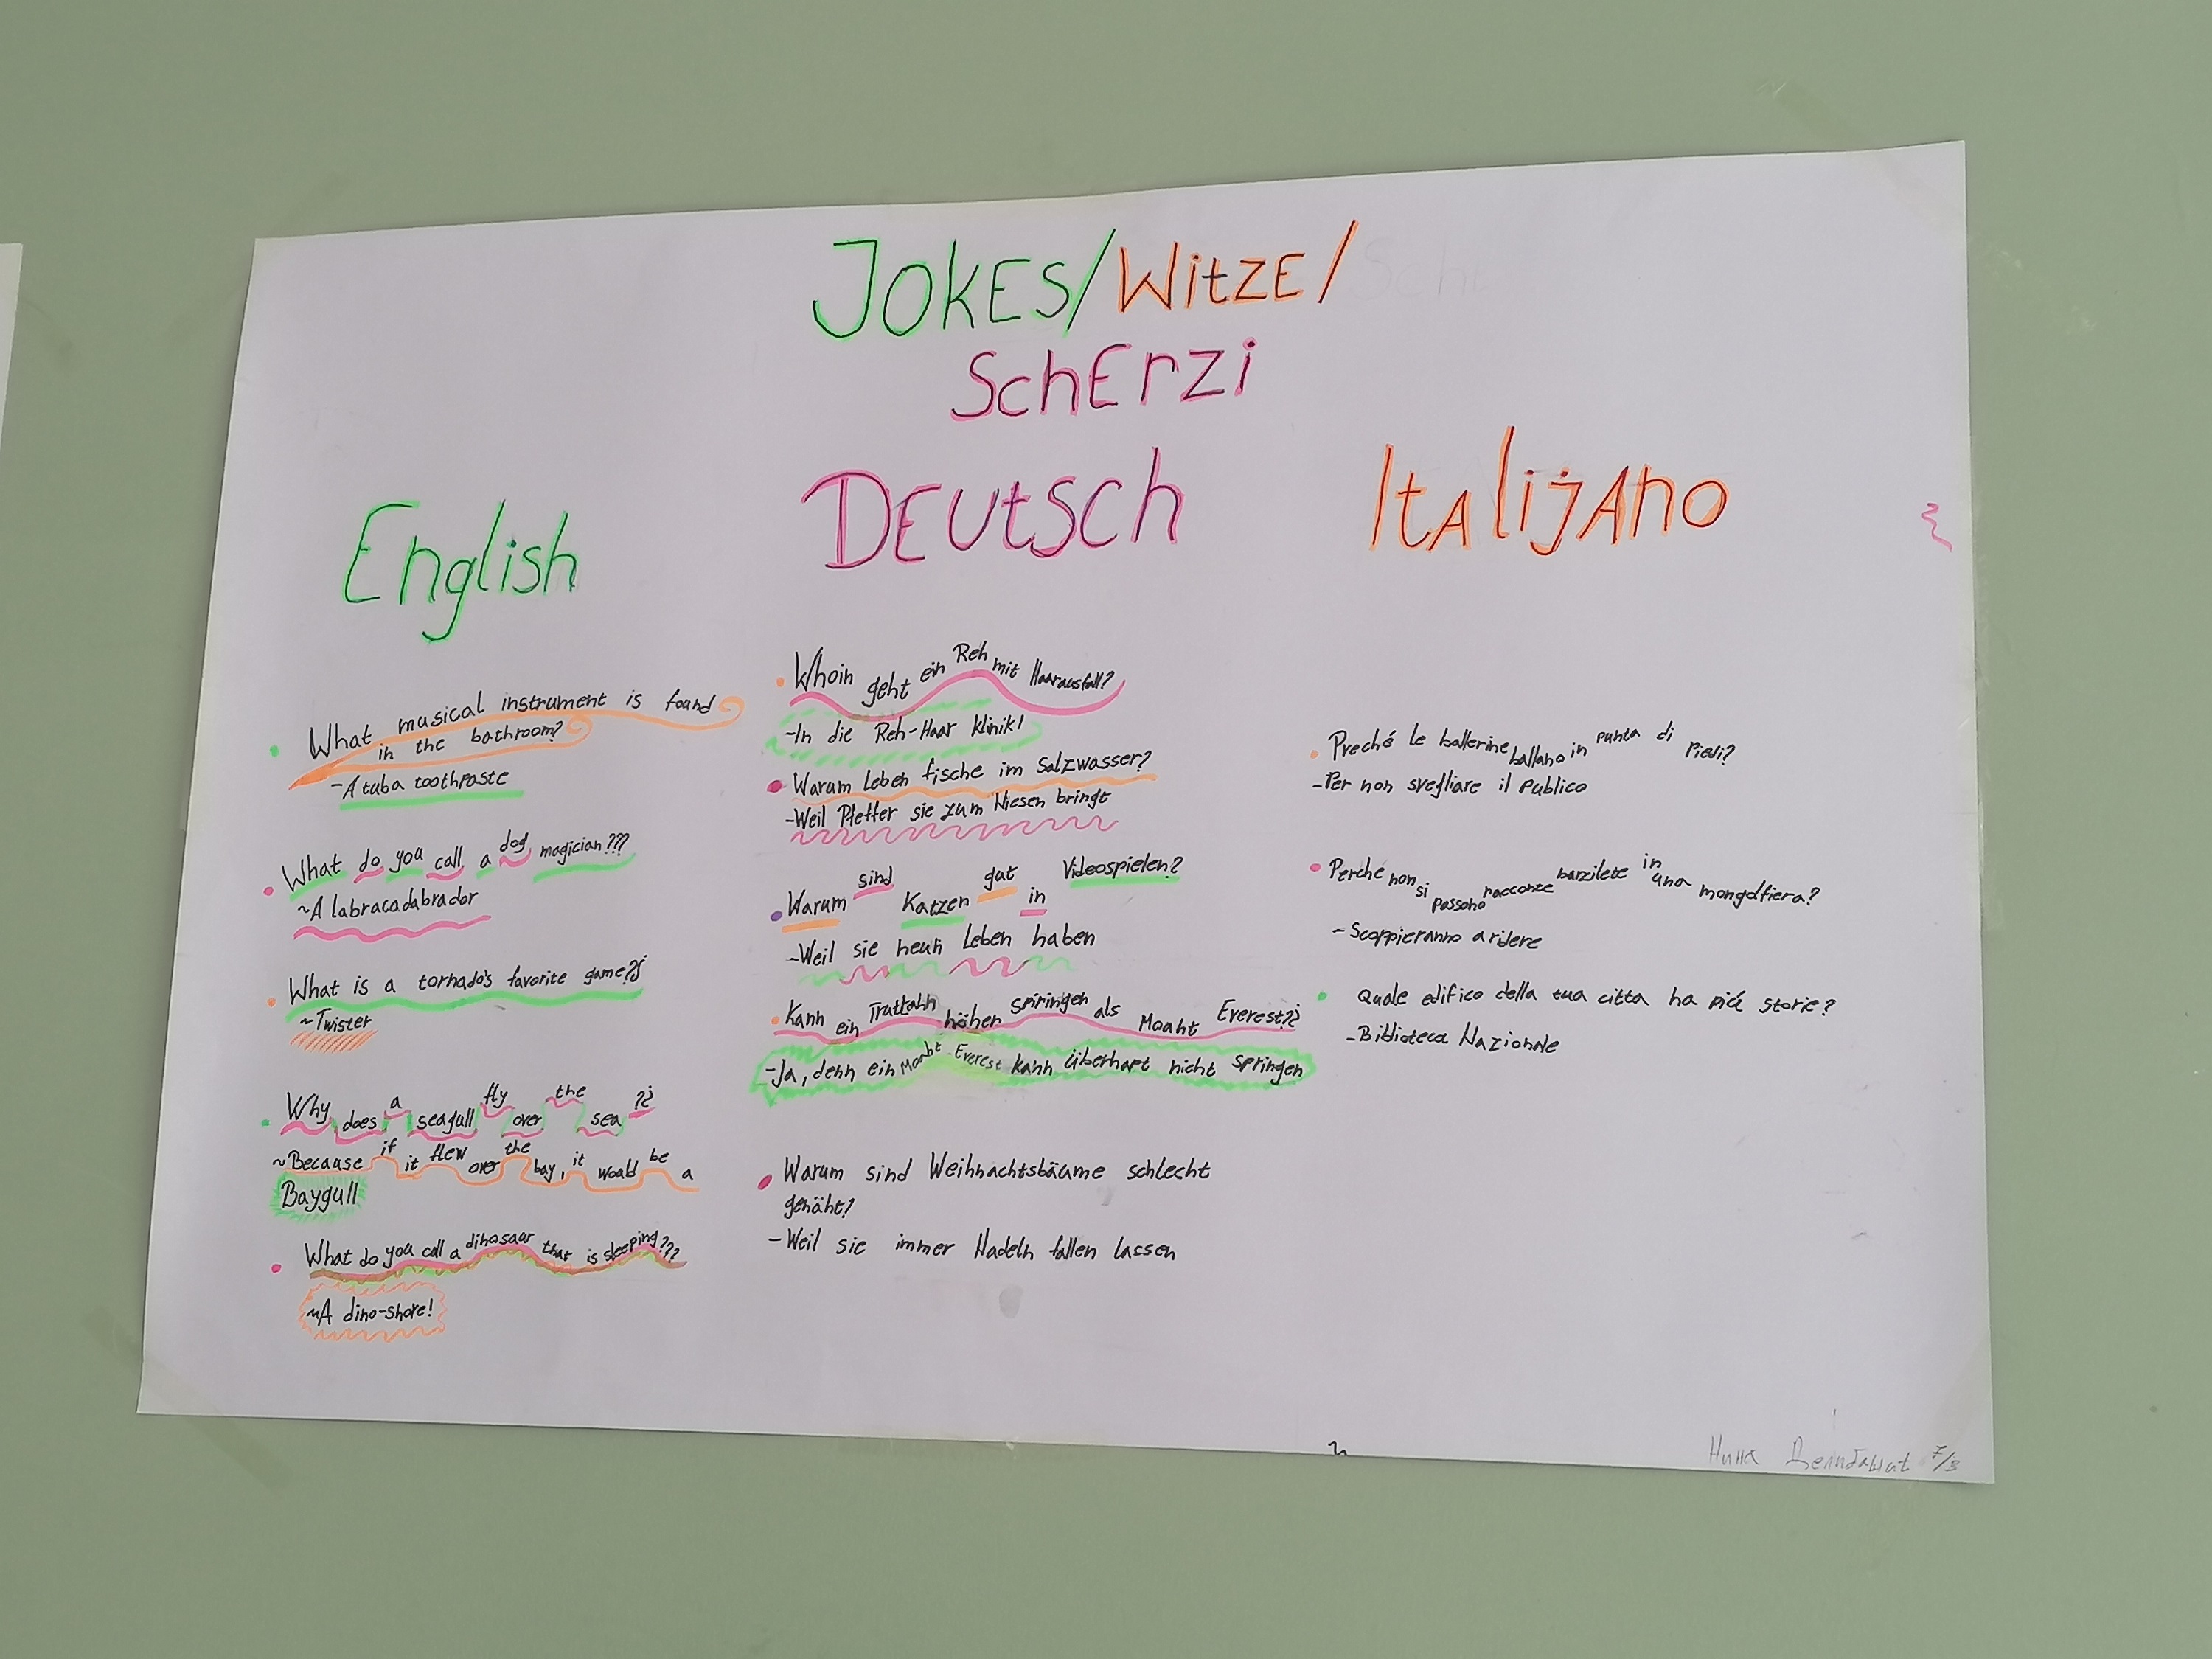 JOKES/WITZE/
SCHERZI
English
What musical instrument is found
in the bathroom?
-A tuba toothpaste
What do you call a dog magician???
~A labracadabrador
What is a tornado's favorite game?¿
~Twister
Why does a seagull fly over the sea ?¿
~Because if it flew over the bay, it woald be a
Baygull
What do you call a dinosaur that is sleeping???
~A dino-shore!
DEUTSCH
Whoin geht ein Reh mit Haarausfall?
-In die Reh-Haar klinik!
Warum Leben fische im Salzwasser?
-Weil Pfeffer sie zum Niesen bringt
Warum sind Katzen gut in Videospielen?
-Weil sie neun Leben haben
Kann ein Truttahn höher spiringen als Moant Everest?¿
-Ja, denn ein Moant Everest kann überhapt nicht springen
Warum sind Weihnachtsbäume schlecht
genäht?
-Weil sie immer Nadeln fallen lassen
ITALIJANO
Preché le ballerine ballano in punta di piedi?
-Per non svegliare il publico
Perché non si passono racconte barzilete in una mongolfiera?
-Scoppieranno a ridere
Quale edifico della tua citta ha piú storie?
-Biblioteca Nazionale
Нина 7/3